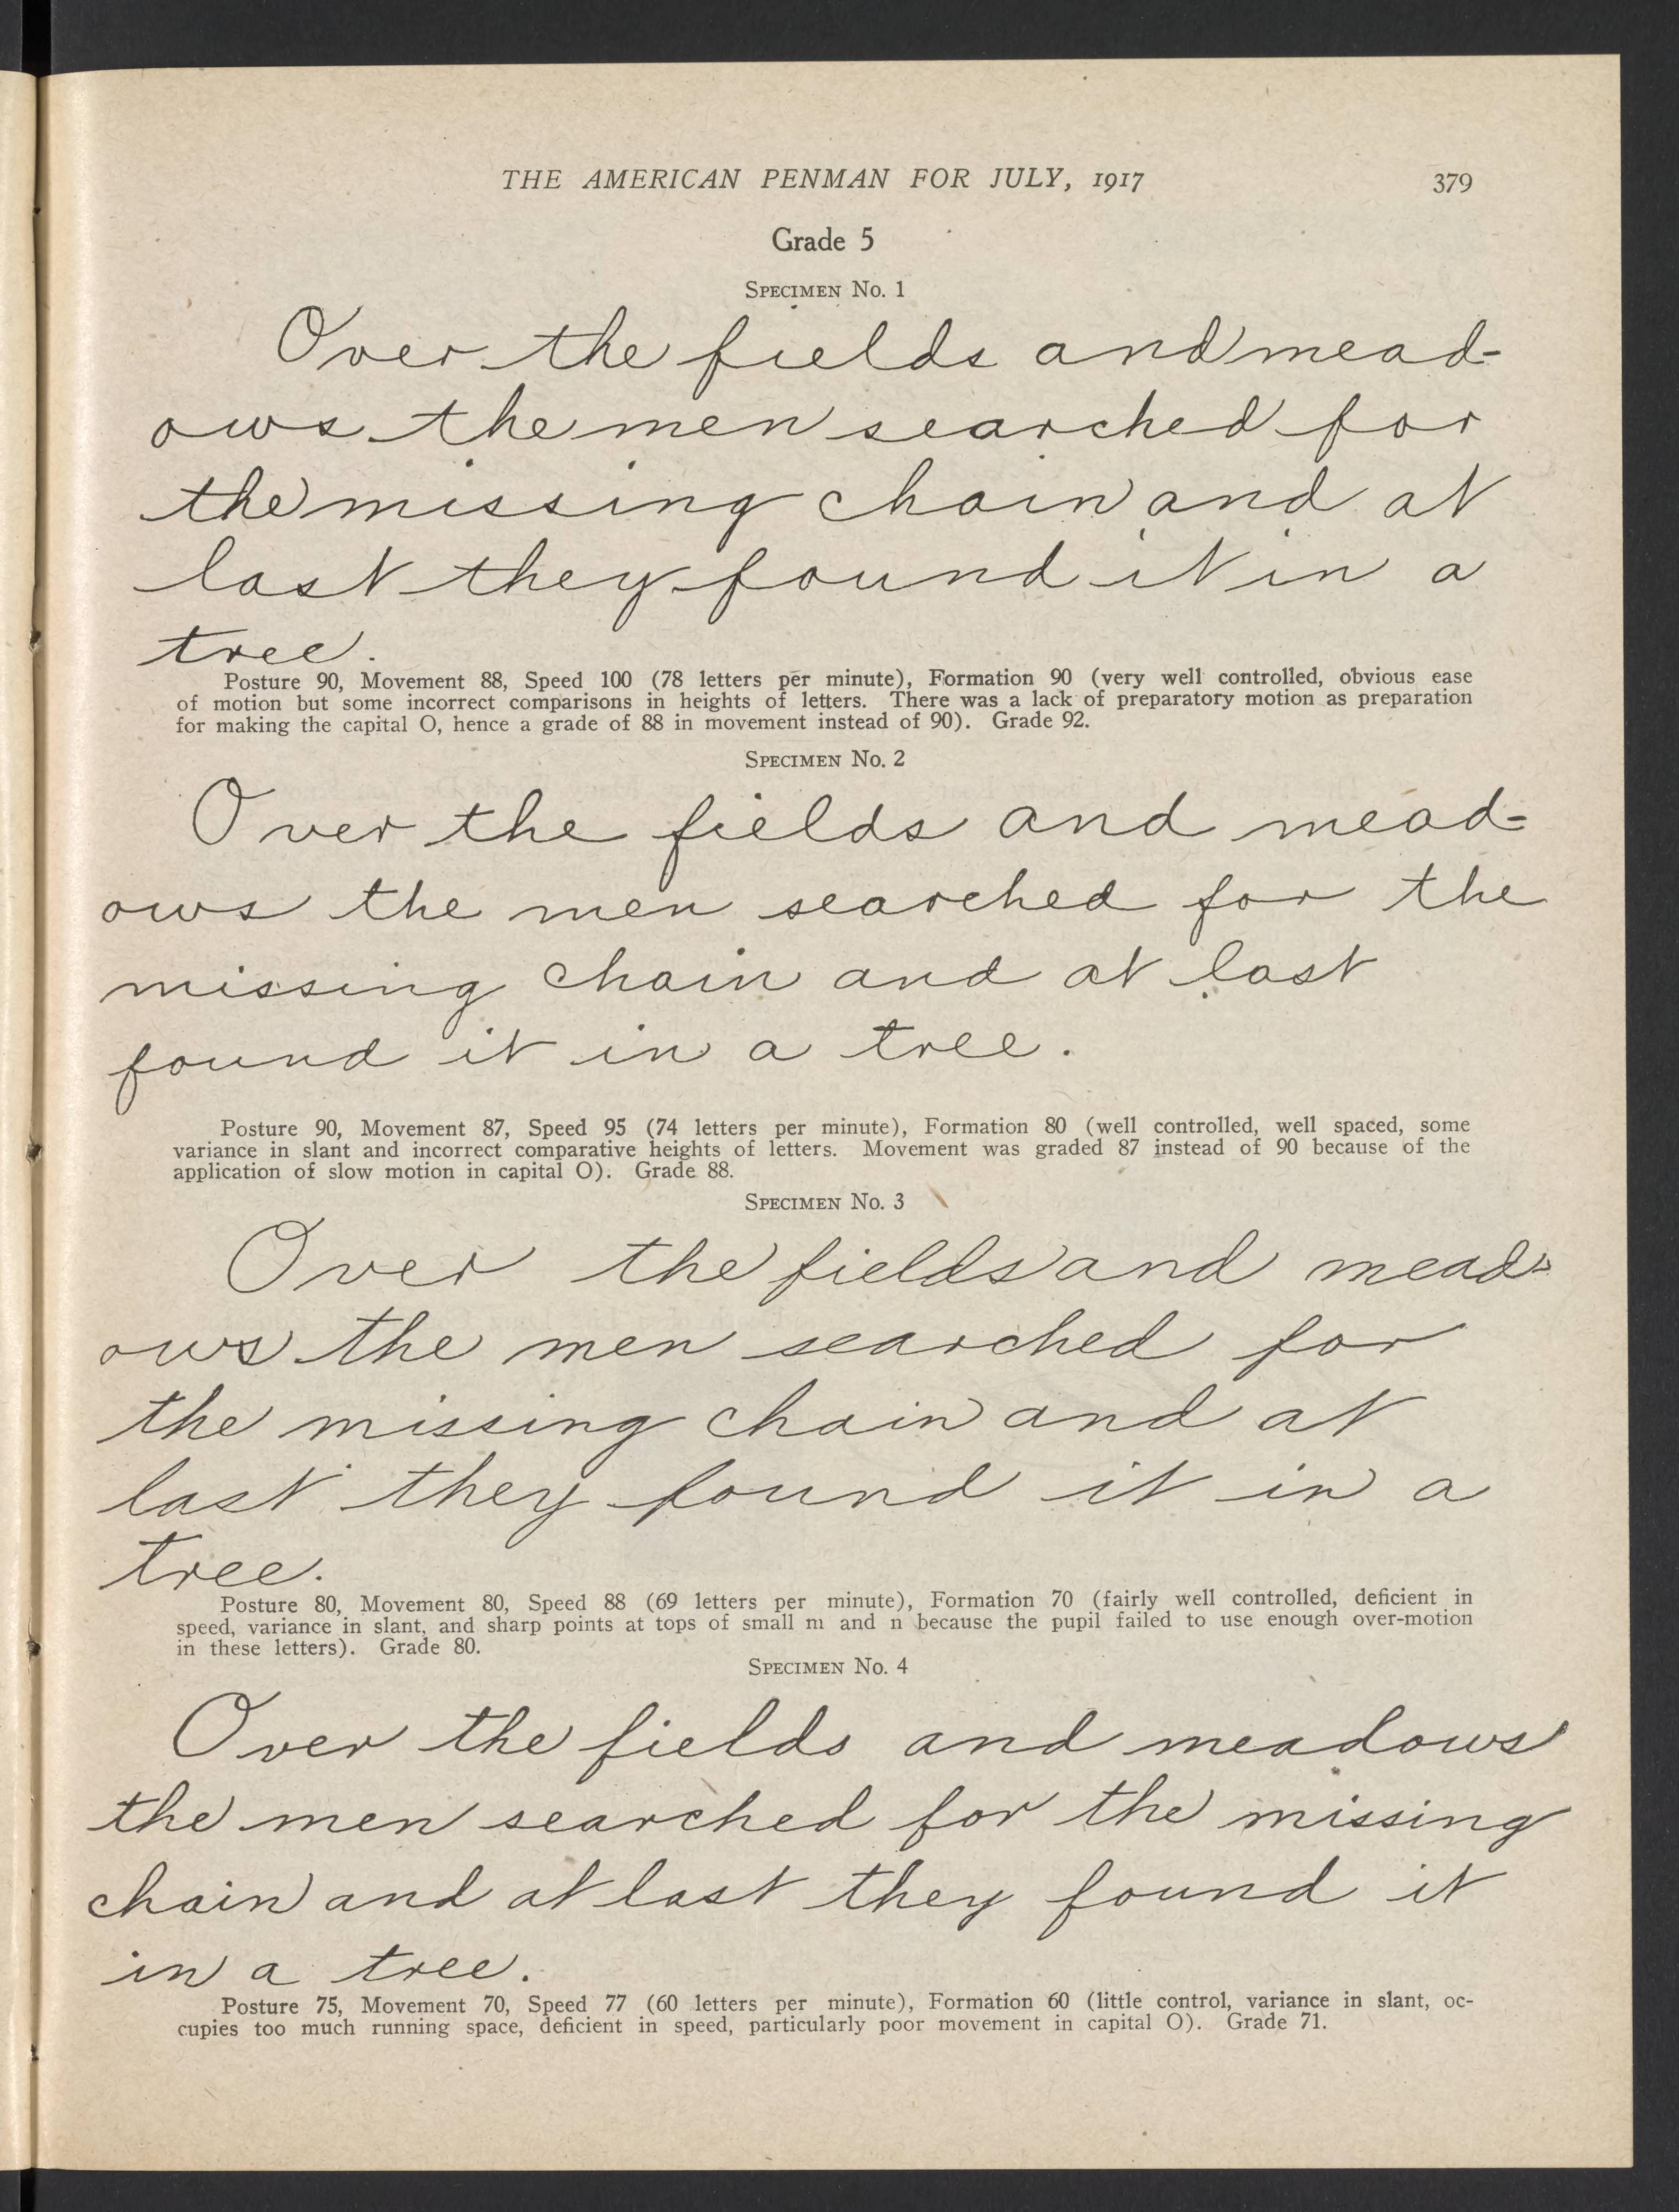 THE AMERICAN PENMAN FOR JULY, 1917 379
Grade 5
Specimen No. 1
Over the fields and mead-
ows the men searched for
the missing chain and at
last they found it in a
tree.
Posture 90, Movement 88, Speed 100 (78 letters per minute), Formation 90 (very well controlled, obvious ease
of motion but some incorrect comparisons in heights of letters. There was a lack of preparatory motion as preparation
for making the capital O, hence a grade of 88 in movement instead of 90). Grade 92.
Specimen No. 2
Over the fields and mead=
ows the men searched for the
missing chain and at last
found it in a tree.
Posture 90, Movement 87, Speed 95 (74 letters per minute), Formation 80 (well controlled, well spaced, some
variance in slant and incorrect comparative heights of letters. Movement was graded 87 instead of 90 because of the
application of slow motion in capital O). Grade 88.
Specimen No. 3
Over the fields and mead=
ows the men searched for
the missing chain and at
last they found it in a
tree.
Posture 80, Movement 80, Speed 88 (69 letters per minute), Formation 70 (fairly well controlled, deficient in
speed, variance in slant, and sharp points at tops of small m and n because the pupil failed to use enough over-motion
in these letters). Grade 80.
Specimen No. 4
Over the fields and meadows
the men searched for the missing
chain and at last they found it
in a tree.
Posture 75, Movement 70, Speed 77 (60 letters per minute), Formation 60 (little control, variance in slant, oc-
cupies too much running space, deficient in speed, particularly poor movement in capital O). Grade 71.